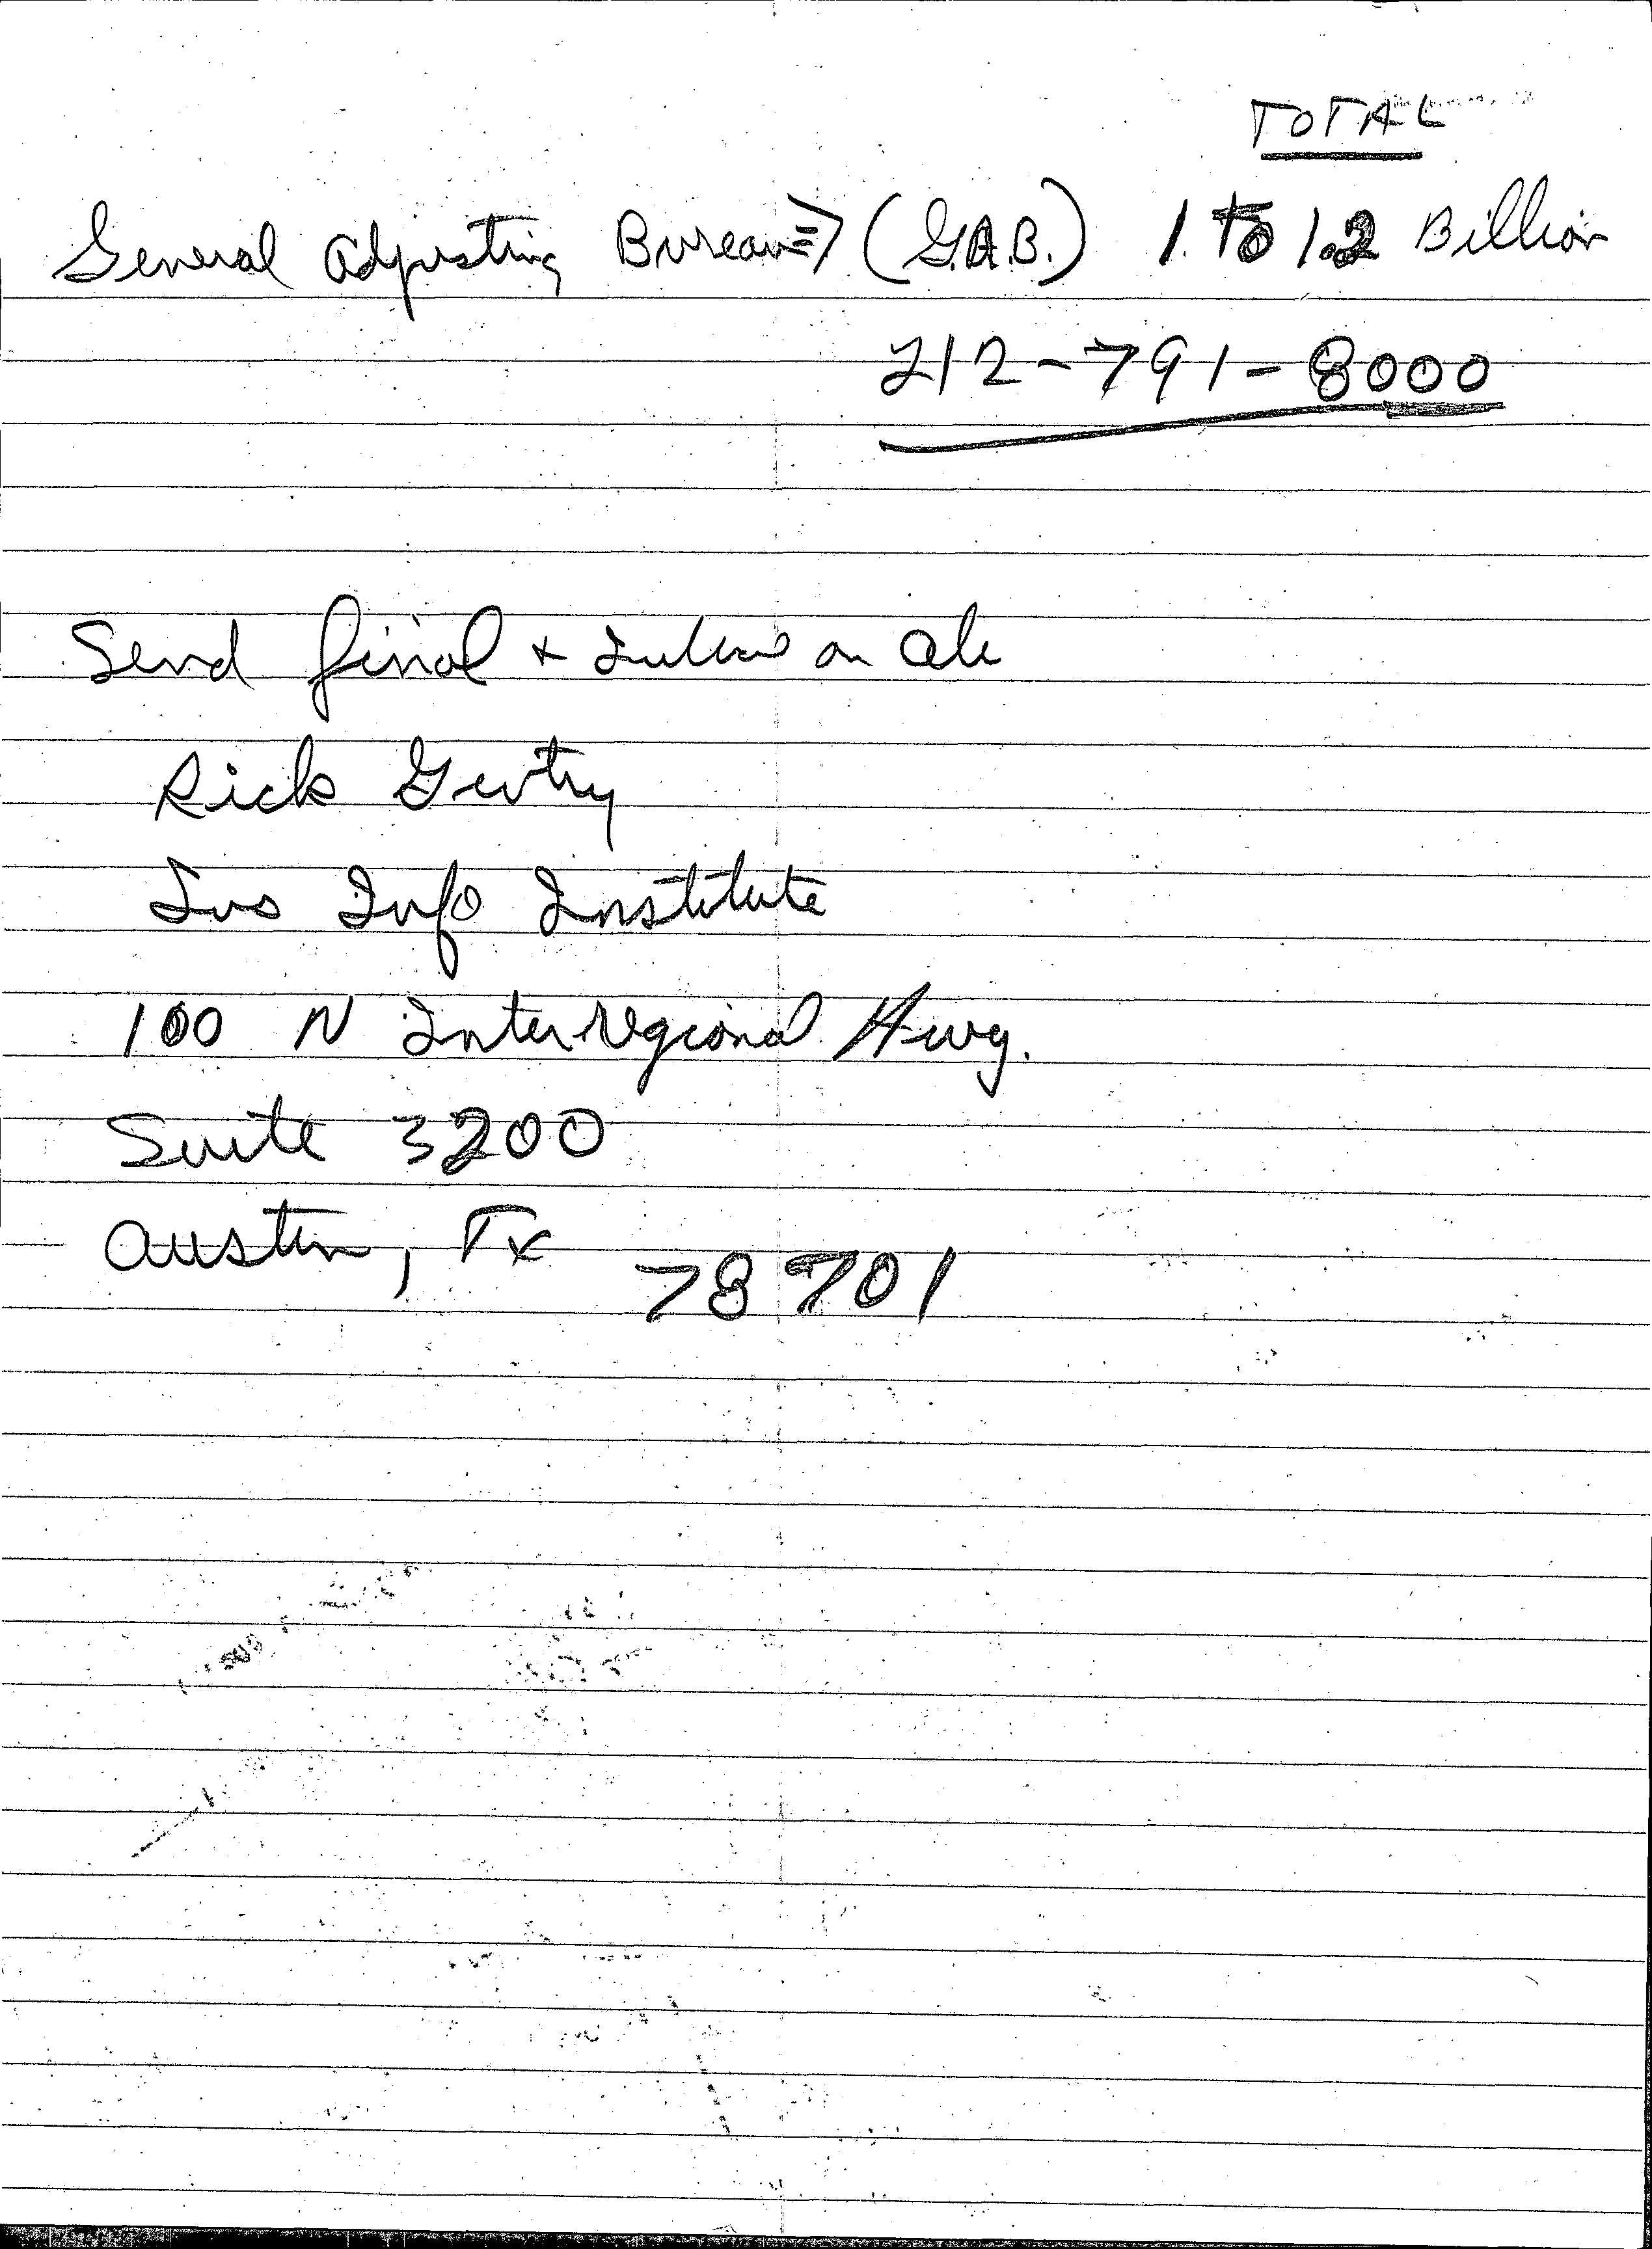 TOTAL
General Adjusting Bureau => (G.A.B.) 1. to 1.2 Billion
212-791-8000
Send final + on
Rick Gentry
Ins Info Institute
100 N Interregional Hwy.
Suite 3200
Austin, Tx 78701